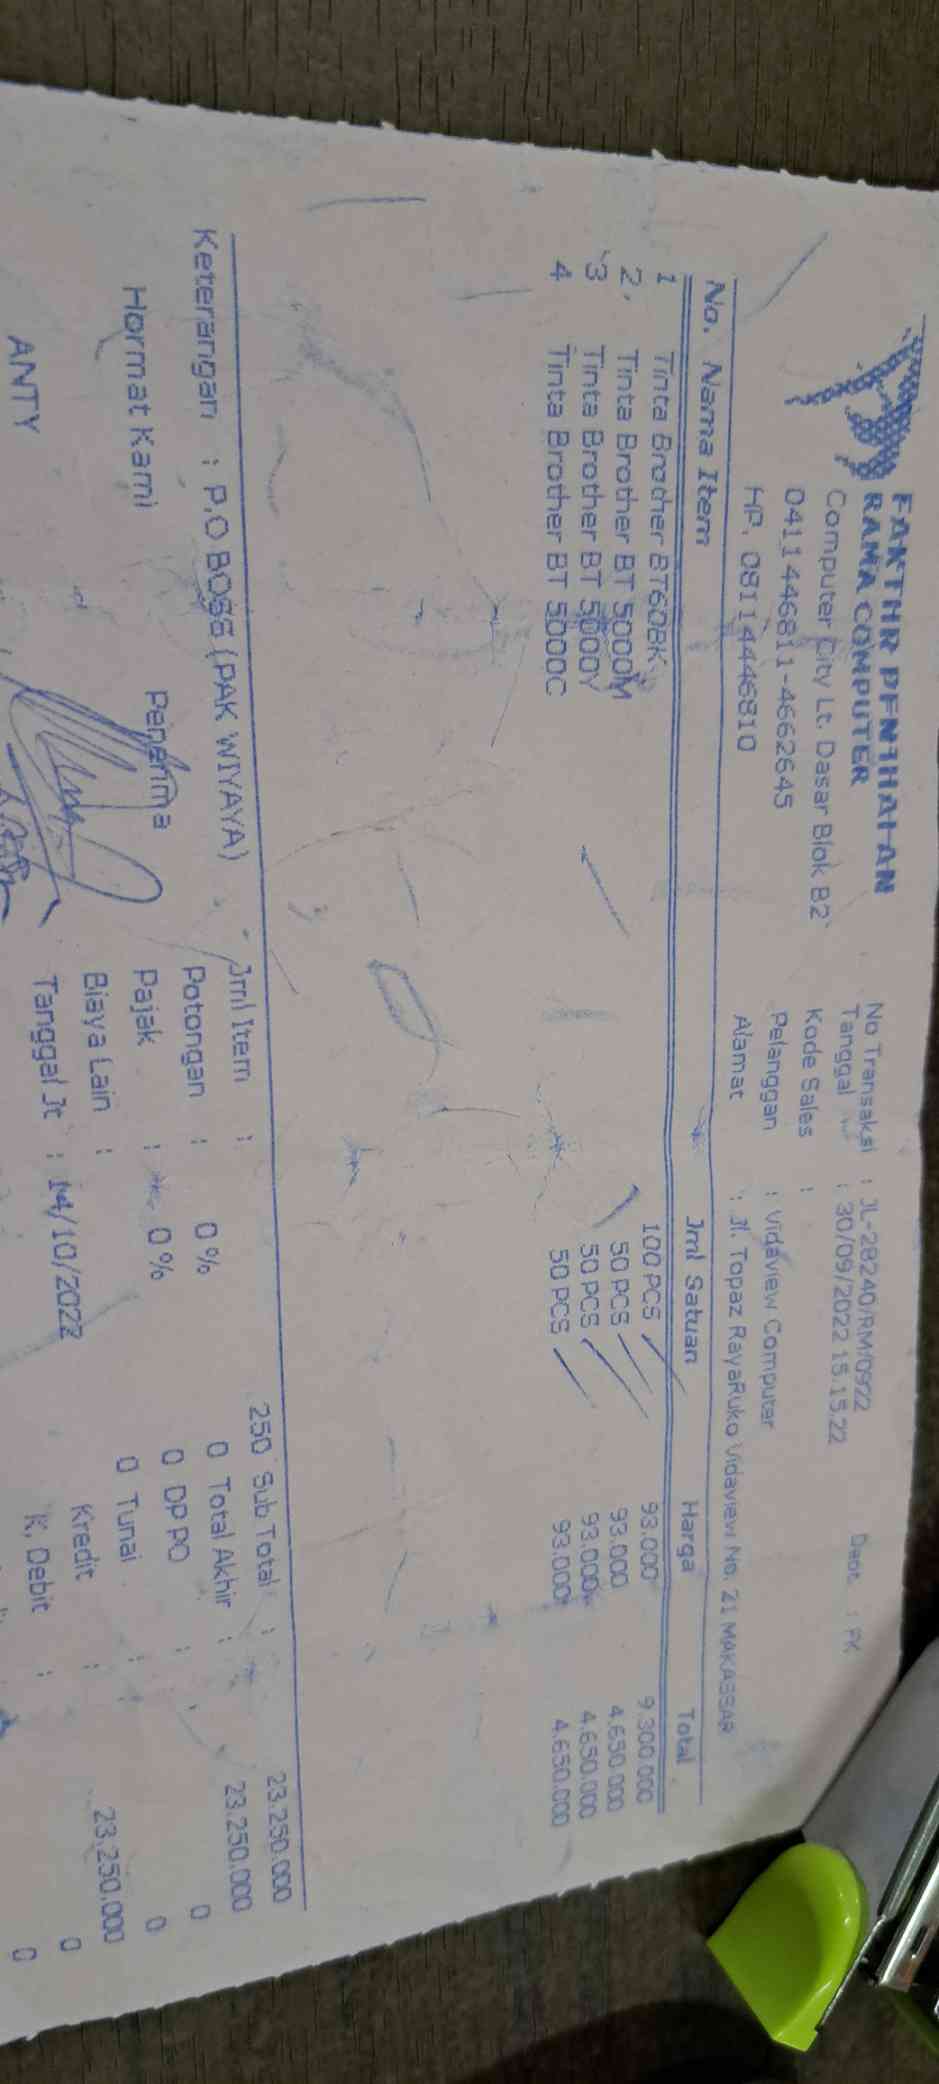 FAKTUR PENJUALAN
RAMA COMPUTER
Computer City Lt. Dasar Blok B2
0411446811-4662645
HP. 0811446810
No Transaksi : JL-28240/RM/0922
Tanggal : 30/09/2022 15.15.22
Kode Sales :
Pelanggan : Vidaview Computer
Alamat : Jl. Topaz RayaRuko Vidaview No. 21 MAKASSAR
Dept. : PK
No. Nama Item Jml Satuan Harga Total
1 Tinta Brother BT60BK 100 PCS 93.000 9.300.000
2 Tinta Brother BT 5000M 50 PCS 93.000 4.650.000
3 Tinta Brother BT 5000Y 50 PCS 93.000 4.650.000
4 Tinta Brother BT 5000C 50 PCS 93.000 4.650.000
Keterangan : P.O BOSS (PAK WIYAYA)
Hormat Kami Penerima
ANTY
Jml Item : 250
Potongan : 0 % 0
Pajak : 0 % 0
Biaya Lain : 0
Tanggal Jt : 14/10/2022
Sub Total : 23.250.000
Total Akhir : 23.250.000
DP PO : 0
Tunai : 0
Kredit : 23.250.000
K. Debit : 0
0